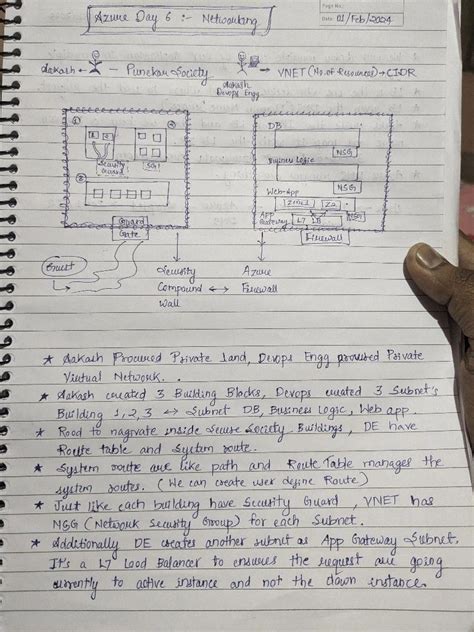 Page No.:
Date: 01/Feb/2024
Azure Day 6 :- Networking
Aakash ← - Punekar Society
Aakash
Devops Engg
→ VNET (No. of Resources) → CIDR
①
②
Security
Guard
SG
③
Guard
Gate
Guest
DB
NSG
Business Logic
NSG
Web-App
App
Gateway
L7 LB
Firewall
Security
Compound ↔
Wall
Azure
Firewall
* Aakash Procured Private land, Devops Engg procured Private
Virtual Network.
* Aakash created 3 Building Blocks, Devops created 3 Subnet's
Building 1,2,3 ↔ Subnet DB, Business Logic, Web app.
* Road to nagivate inside Society Buildings, DE have
Route table and System route.
* System route are like path and Route Table manages the
system routes. (We can create user define Route)
* Just like each building have Security Guard, VNET has
NSG (Network Security Group) for each Subnet.
* Additionally DE creates another subnet as App Gateway Subnet.
It's a L7 Load Balancer to ensures the request are going
currently to active instance and not the down instance.